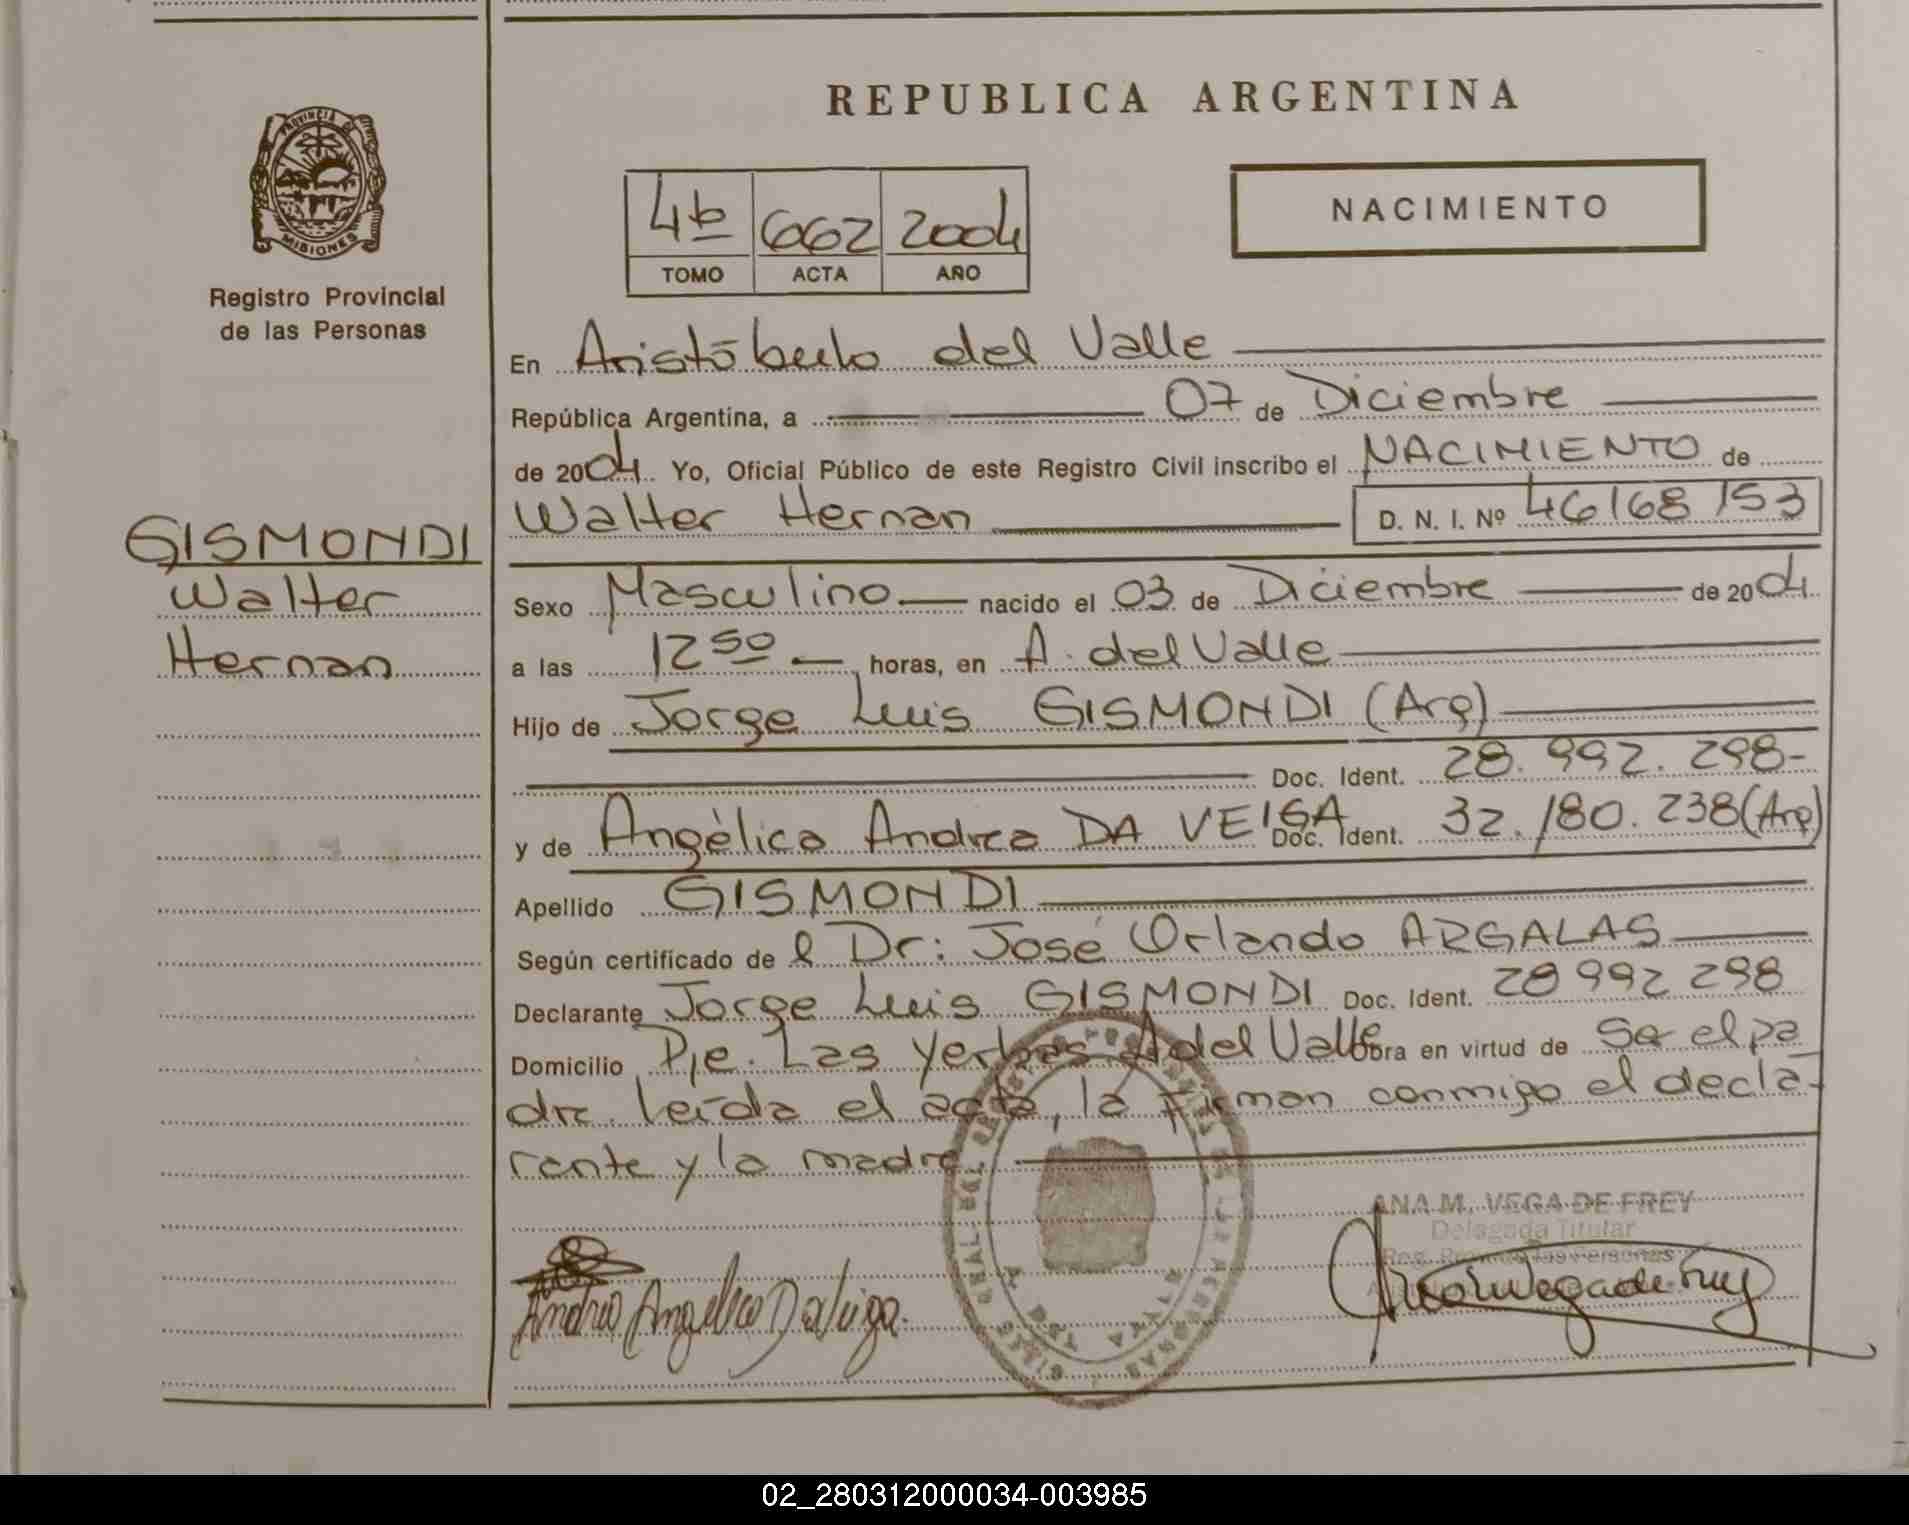 REPUBLICA ARGENTINA
PROVINCIA DE
MISIONES
Registro Provincial
de las Personas
4b 662 2004
TOMO ACTA AÑO
NACIMIENTO
En Aristóbulo del Valle
República Argentina, a 07 de Diciembre
de 2004 Yo, Oficial Público de este Registro Civil inscribo el NACIMIENTO de
Walter Hernan D. N. I. Nº 46168153
GISMONDI
Walter
Hernan
Sexo Masculino nacido el 03 de Diciembre de 2004
a las 12 50 horas, en A. del Valle
Hijo de Jorge Luis GISMONDI (Arg)
Doc. Ident. 28.992.298-
y de Angélica Andrea DA VEIGA Doc. Ident. 32.180.238 (Arg)
Apellido GISMONDI
Según certificado de l Dr: José Orlando ARGALAS
Declarante Jorge Luis GISMONDI Doc. Ident. 28 992 298
Domicilio Pje. Las Yerbas A del Valle obra en virtud de Se el pa
dre. Leída el acta, la firman conmigo el decla-
rante y la madre.
ANA M. VEGA DE FREY
Delegada Titular
Reg. Prov. de las Personas
Andrea Angelica Daveiga.
02_280312000034-003985